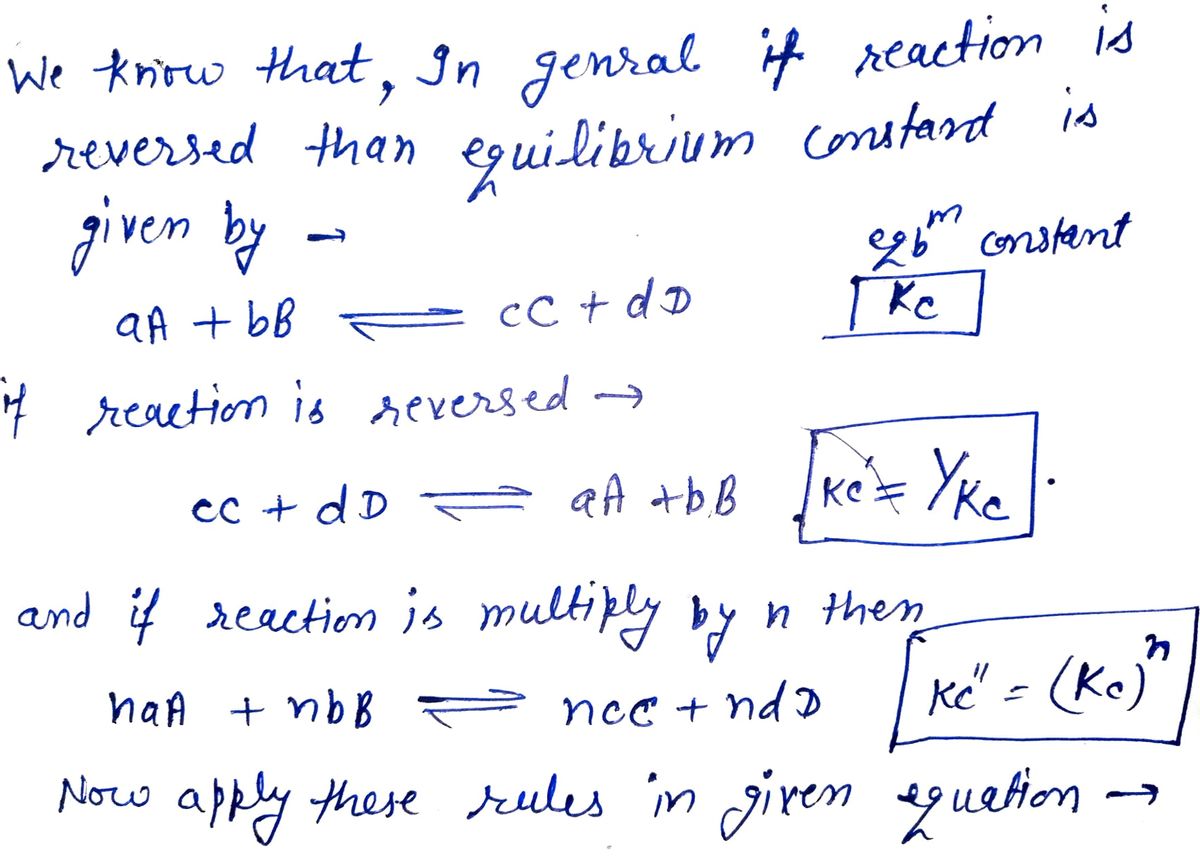 We know that, In genral if reaction is
reversed than equilibrium constant is
given by →
eqbᵐ constant
aA + bB ⇌ cC + dD Kc
if reaction is reversed →
cC + dD ⇌ aA + bB Kc' = 1/Kc .
and if reaction is multiply by n then
naA + nbB ⇌ ncC + ndD Kc" = (Kc)ⁿ
Now apply these rules in given equation →